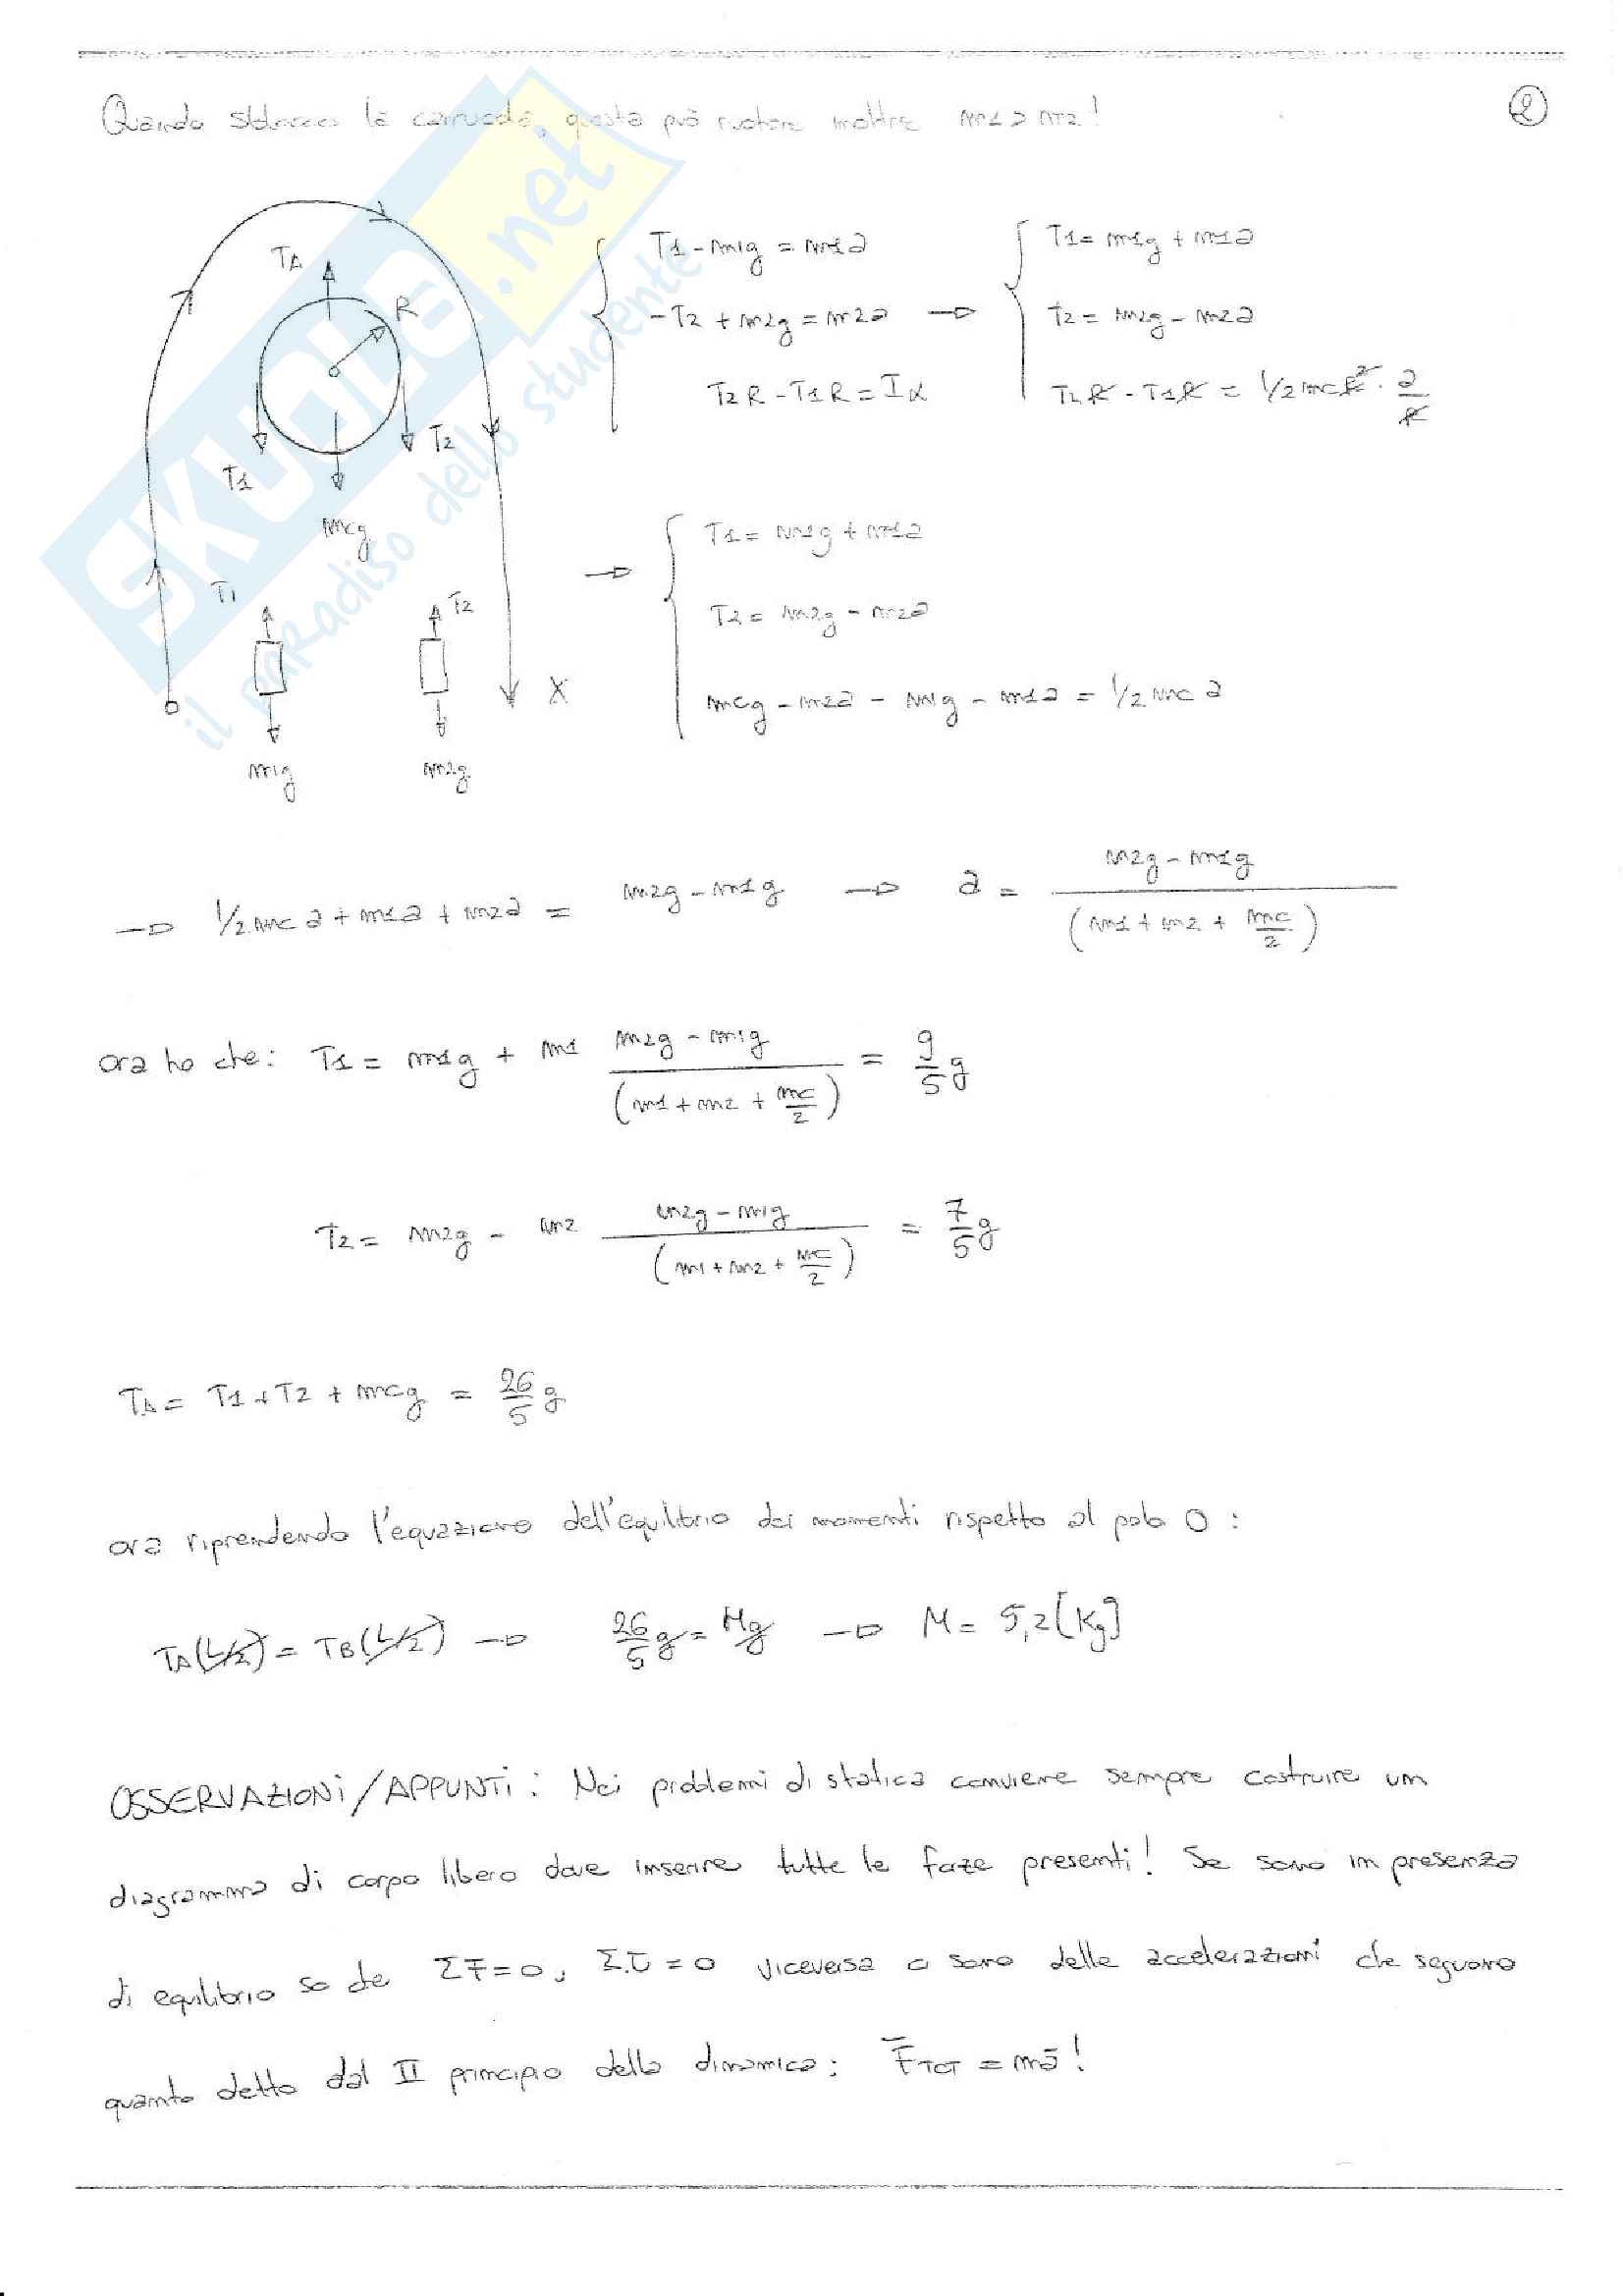 Quando sblocco la carrucola, questa può ruotare inoltre m1 > m2!
2
TA
R
T1
T2
mcg
T1
T2
X
m1g
m2g
T1 - m1g = m1a
-T2 + m2g = m2a
T2R - T1R = Iα
→
T1 = m1g + m1a
T2 = m2g - m2a
T2R - T1R = 1/2 mcR² · a/R
→
T1 = m1g + m1a
T2 = m2g - m2a
mcg - m2a - m1g - m1a = 1/2 mc a
→ 1/2 mc a + m1a + m2a = m2g - m1g → a = m2g - m1g / (m1 + m2 + mc/2)
ora ho che: T1 = m1g + m1 m2g - m1g / (m1 + m2 + mc/2) = 9/5 g
T2 = m2g - m2 m2g - m1g / (m1 + m2 + mc/2) = 7/5 g
TA = T1 + T2 + mcg = 26/5 g
ora riprendendo l'equazione dell'equilibrio dei momenti rispetto al polo O :
TA(L/2) = TB(L/2) → 26/5 g = Mg → M = 5,2 [Kg]
OSSERVAZIONI/APPUNTI : Nei problemi di statica conviene sempre costruire un
diagramma di corpo libero dove inserire tutte le forze presenti! Se sono in presenza
di equilibrio so che ΣF=0, Στ=0 viceversa ci sono delle accelerazioni che seguono
quanto detto dal II principio della dinamica: F̄TOT = mā!
SKUOLA.net
il paradiso dello studente